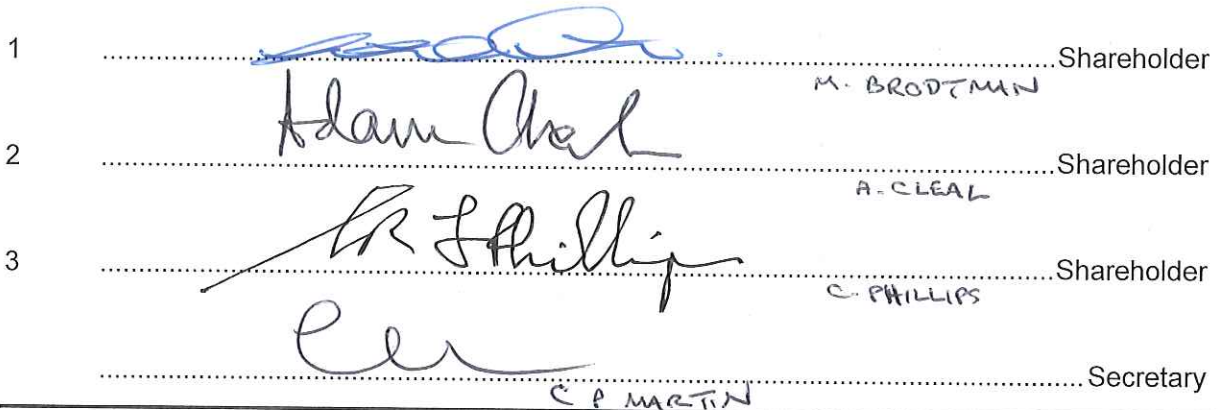 1 ........ Shareholder
M. BRODTMAN
Adam Cleal
2 ........ Shareholder
A. CLEAL
Phillips
3 ........ Shareholder
C. PHILLIPS
........ Secretary
C P MARTIN